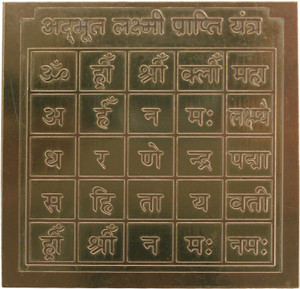 अद्भूत लक्ष्मी प्राप्ति यंत्र
ॐ ह्रीँ श्रीँ क्लीँ महा
अ र्हँ न मः लक्ष्म्ये
ध र णे न्द्र पद्मा
स हि ता य वती
ह्रीँ श्रीँ न मः नमः